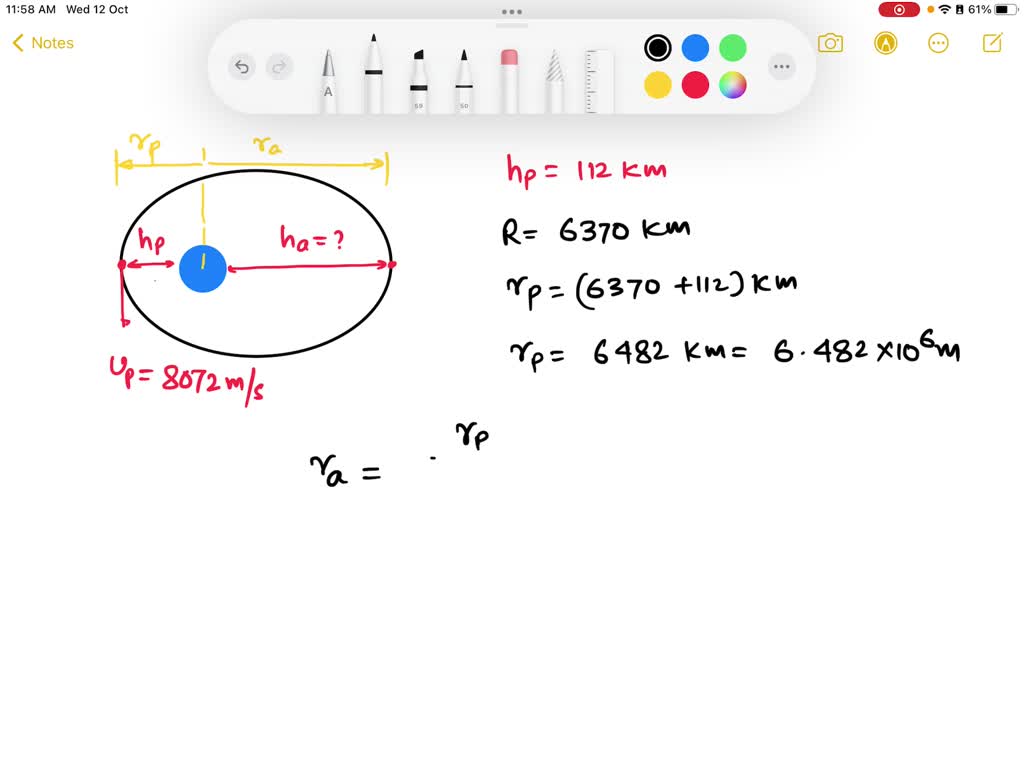 11:58 AM Wed 12 Oct
61%
Notes
A
59
50
rp
ra
hp
ha = ?
υp = 8072 m/s
hp = 112 Km
R = 6370 Km
rp = (6370 + 112) Km
rp = 6482 Km = 6.482 × 10⁶ m
rp
ra =